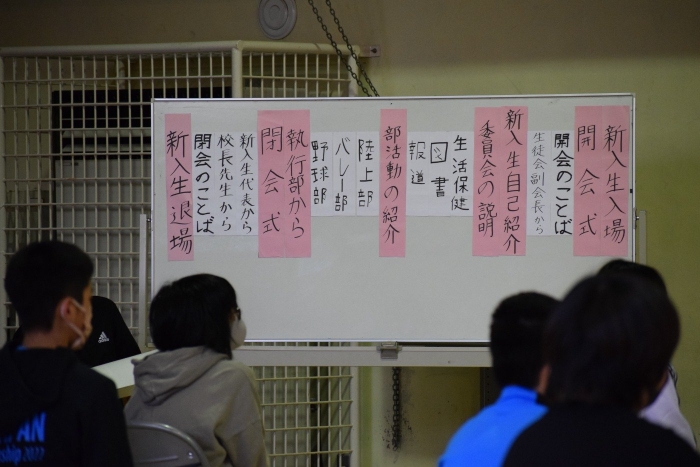 新入生入場
開会式
開会のことば
生徒会副会長から
新入生自己紹介
委員会の説明
生活保健
図書
報道
部活動の紹介
陸上部
バレー部
野球部
執行部から
閉会式
新入生代表から
校長先生から
閉会のことば
新入生退場
adidas